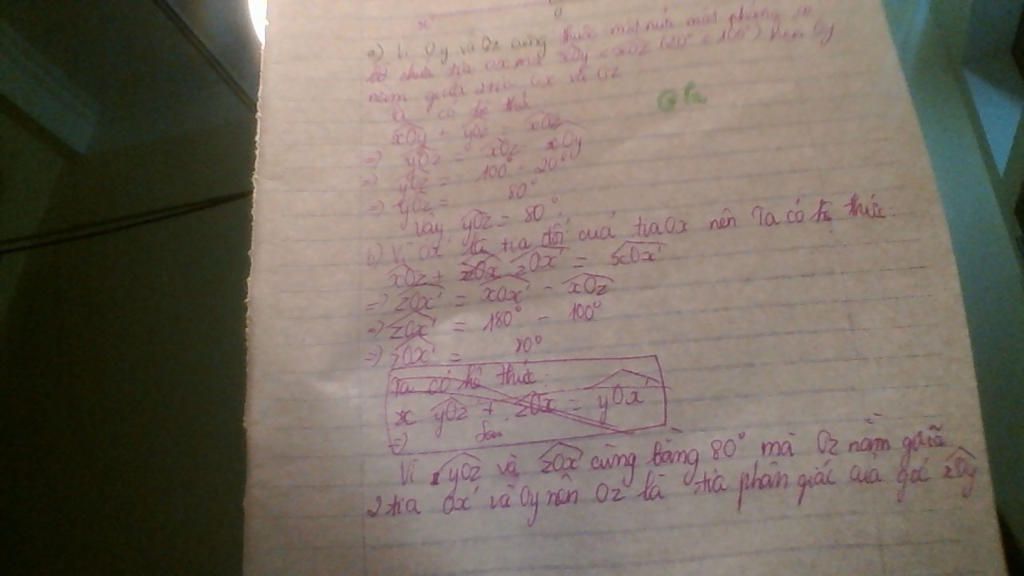 x'
O
a) Vì Oy và Oz cùng thuộc một nửa mặt phẳng có
bờ chứa tia Ox mà xOy < xOz (20° < 100°) nên Oy
nằm giữa 2 tia Ox và Oz
Ta có hệ thức
xOy + yOz = xOz
=) yOz = xOz - xOy
=) yOz = 100° - 20°
=) yOz = 80°
Vậy yOz = 80°
b) Vì Ox' là tia đối của tia Ox nên Ta có hệ thức:
xOz + zOx' = xOx'
=) zOx' = xOx' - xOz
=) zOx' = 180° - 100°
=) zOx' = 80°
Ta có hệ thức:
yOz + zOx = yOx
=)
Vì yOz và zOx' cùng bằng 80° mà Oz nằm giữa
2 tia Ox' và Oy nên Oz là tia phân giác của góc x'Oy